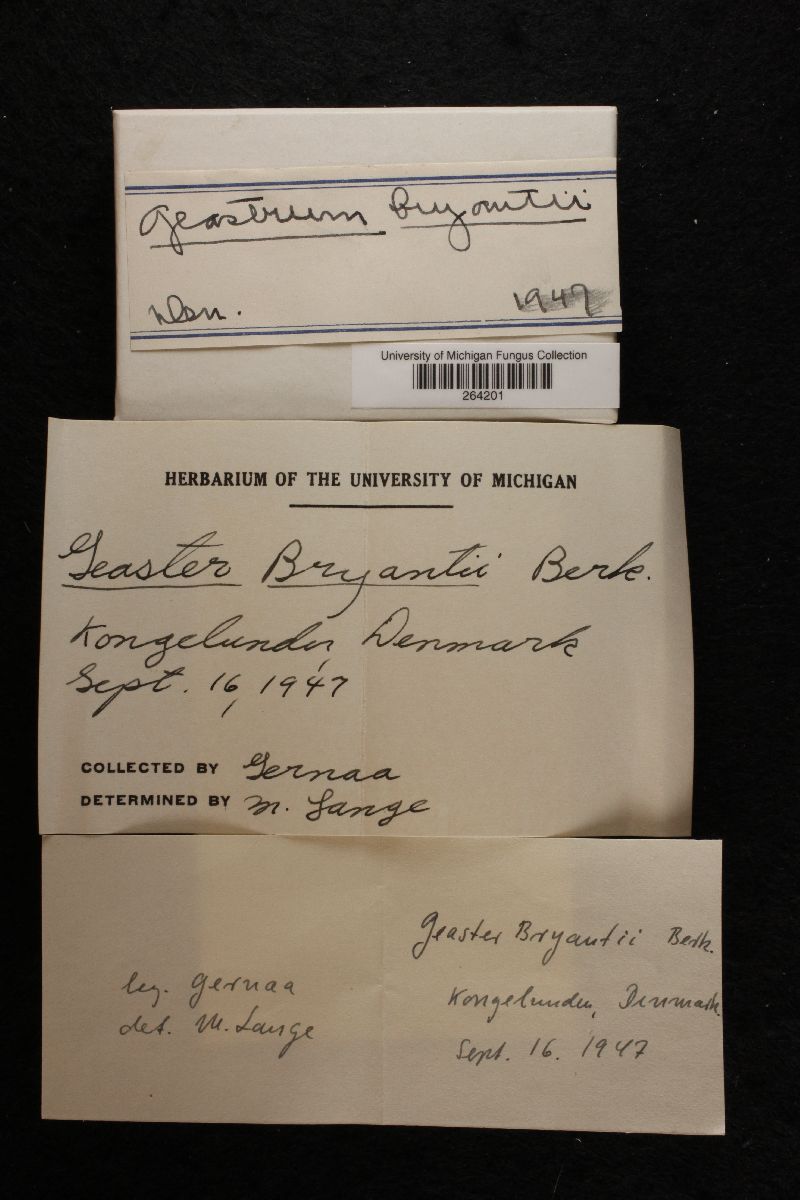 Geastrum Bryantii
Den. 1947
University of Michigan Fungus Collection
264201
HERBARIUM OF THE UNIVERSITY OF MICHIGAN
Geaster Bryantii Berk.
Kongelunden, Denmark
Sept. 16, 1947
COLLECTED BY Gernaa
DETERMINED BY M. Lange
Geaster Bryantii Berk.
leg. Gernaa
Kongelunden, Denmark.
det. M. Lange
Sept. 16. 1947